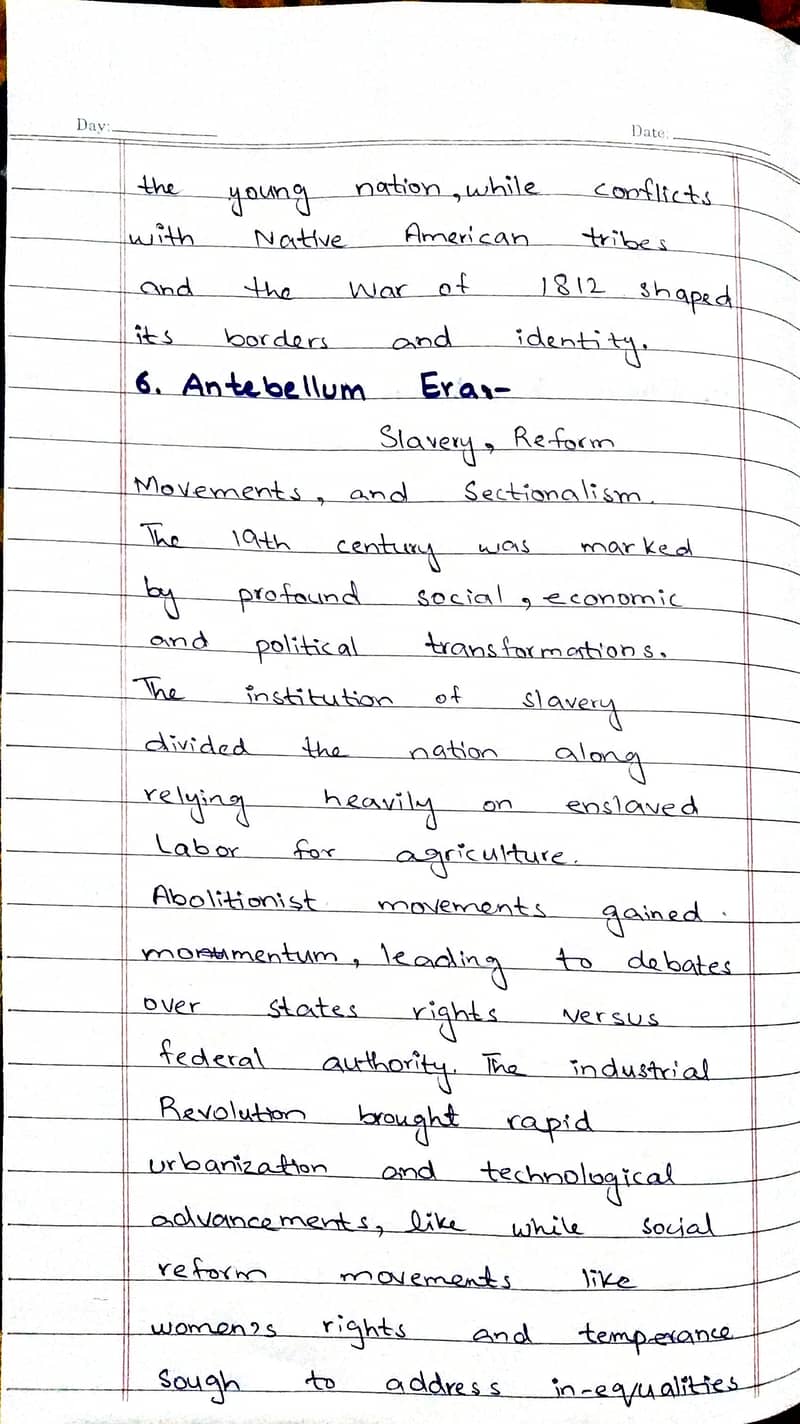 Day: Date:
the young nation, while conflicts
with Native American tribes
and the War of 1812 shaped
its borders and identity.
6. Antebellum Era:-
Slavery, Reform
Movements, and Sectionalism.
The 19th century was marked
by profound social, economic
and political transformations.
The institution of slavery
divided the nation along
relying heavily on enslaved
Labor for agriculture.
Abolitionist movements gained.
momumentum, leading to debates
over states rights versus
federal authority. The industrial
Revolution brought rapid
urbanization and technological
advancements, like while social
reform movements like
women's rights and temperance
Sough to address in-equalities